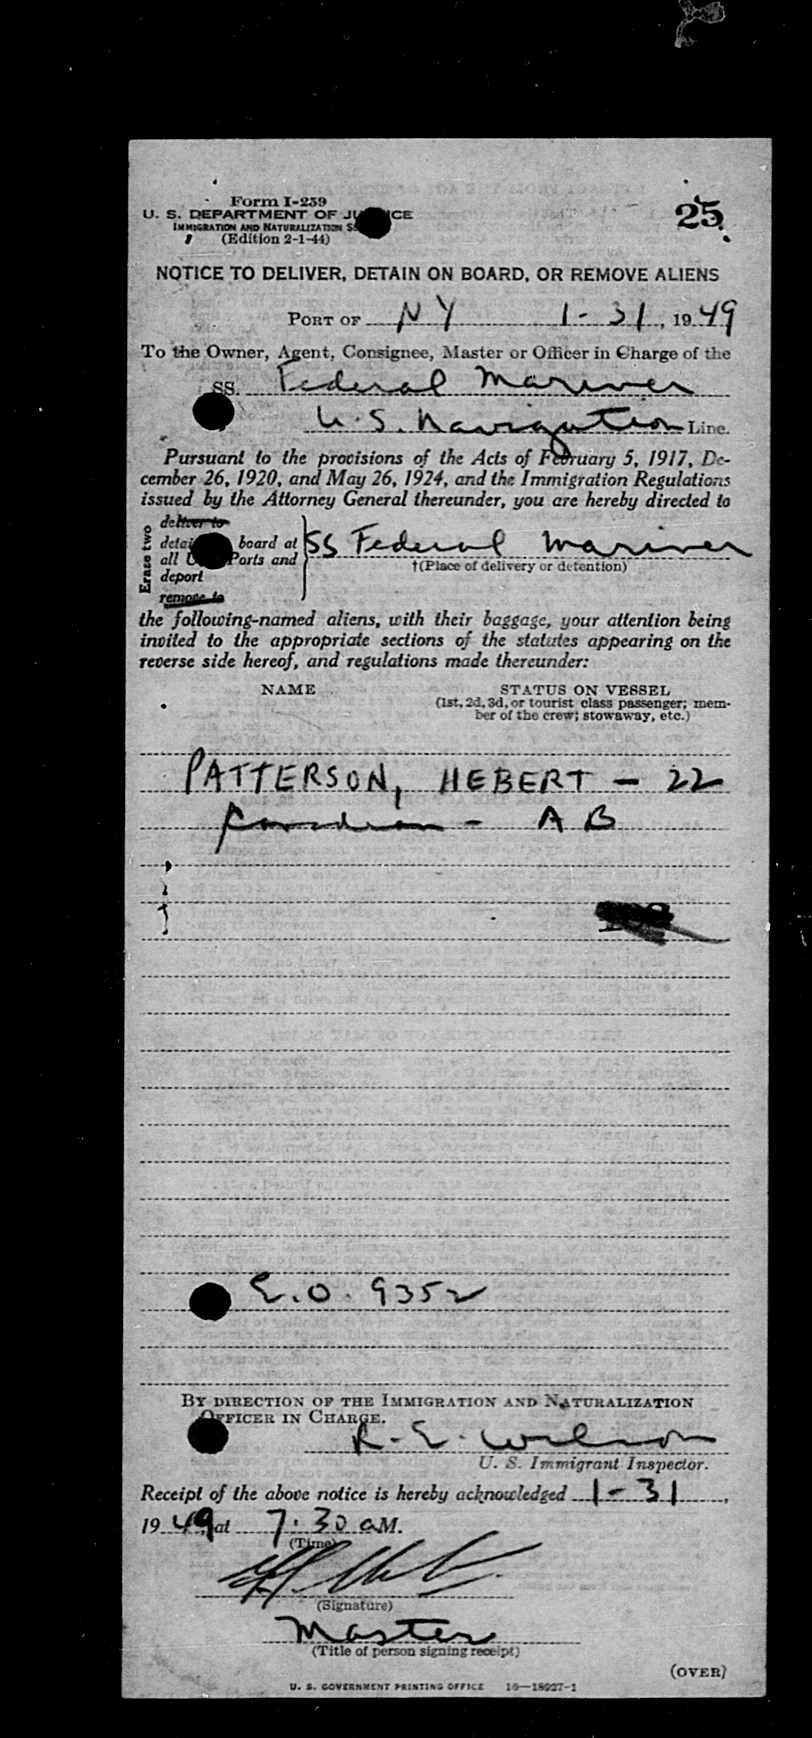 Form I-259
25
U. S. DEPARTMENT OF JUSTICE
IMMIGRATION AND NATURALIZATION
(Edition 2-1-44)
NOTICE TO DELIVER, DETAIN ON BOARD, OR REMOVE ALIENS
PORT OF NY 1-31, 1949
To the Owner, Agent, Consignee, Master or Officer in Charge of the
SS. Federal Mariner
U.S. Navigation Line.
Pursuant to the provisions of the Acts of February 5, 1917, De-
cember 26, 1920, and May 26, 1924, and the Immigration Regulations
issued by the Attorney General thereunder, you are hereby directed to
Erase two
deliver to
detain board at
all Ports and
deport
remove to
SS Federal Mariner
†(Place of delivery or detention)
the following-named aliens, with their baggage, your attention being
invited to the appropriate sections of the statutes appearing on the
reverse side hereof, and regulations made thereunder:
NAME STATUS ON VESSEL
(1st, 2d, 3d, or tourist class passenger; mem-
ber of the crew; stowaway, etc.)
PATTERSON, HEBERT - 22
Canadian - AB
E.O. 9352
BY DIRECTION OF THE IMMIGRATION AND NATURALIZATION
OFFICER IN CHARGE.
R. E. Wilson
U. S. Immigrant Inspector.
Receipt of the above notice is hereby acknowledged 1-31,
1949, at 7:30 aM.
(Time)
(Signature)
Master
(Title of person signing receipt)
(OVER)
U. S. GOVERNMENT PRINTING OFFICE 16—18027-1